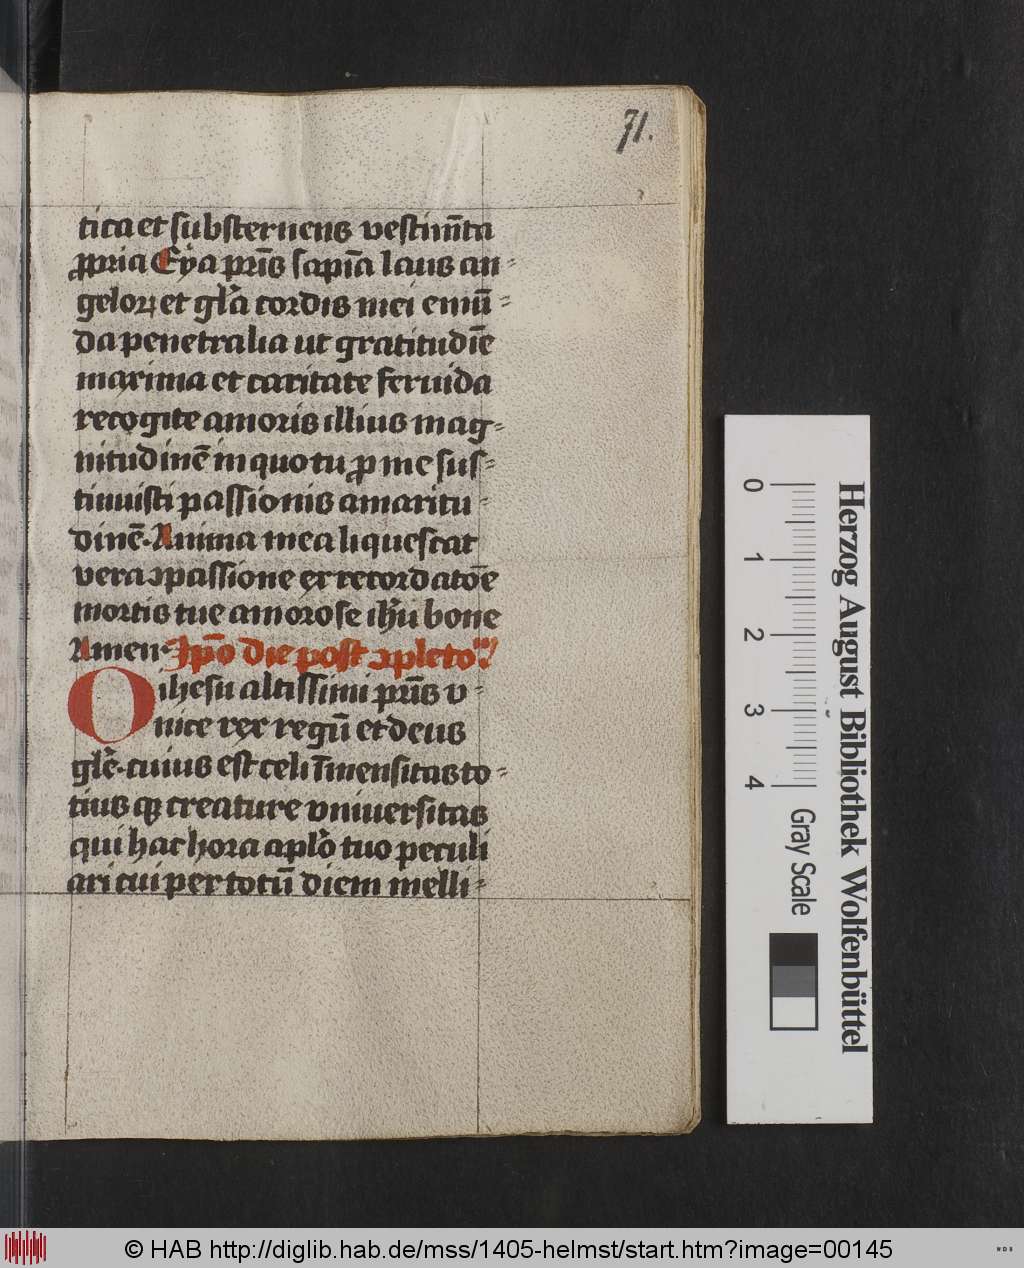 71.
tica et substernens vestim̄ta
ꝓpria Eya pr̄is sapīa laus an-
geloꝝ et gl̓a cordis mei emū-
da penetralia ut gratitudīe
maxima et caritate feruida
recogite amoris illius mag-
nitudinē in quo tu ꝓ me sus-
tinuisti passionis amaritu-
dinē. Anima mea liquescat
vera ꝯpassione ex recordatōe
mortis tue amorose ih̓u bone
Amen. Ip̄o die post ꝯpleto
O ihesu altissimi pr̄is v-
nice rex regū et deus
gl̓e. cuius est celi īmensitas to-
tius qꝫ creature vniuersitas
qui hac hora apl̓o tuo peculi
ari cui per totū diem melli-
0 1 2 3 4
Gray Scale
Herzog August Bibliothek Wolfenbüttel
© HAB http://diglib.hab.de/mss/1405-helmst/start.htm?image=00145